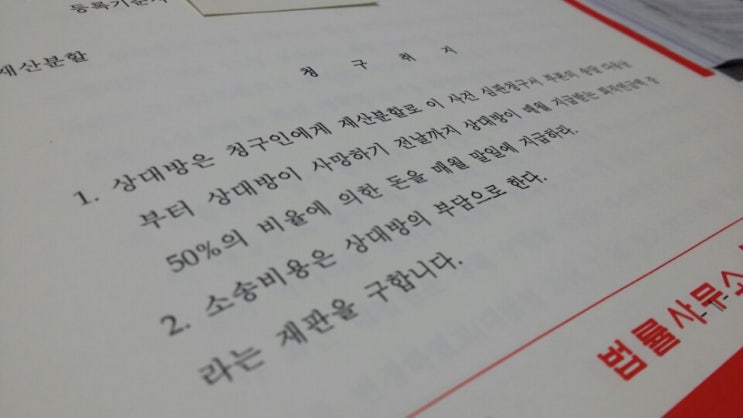 등록기준지
재산분할
청 구 취 지
1. 상대방은 청구인에게 재산분할로 이 사건 심판청구서 부본의 송달 다음날
부터 상대방이 사망하기 전날까지 상대방이 매월 지급받는 퇴직연금액 중
50%의 비율에 의한 돈을 매월 말일에 지급하라.
2. 소송비용은 상대방의 부담으로 한다.
라는 재판을 구합니다.
법률사무소